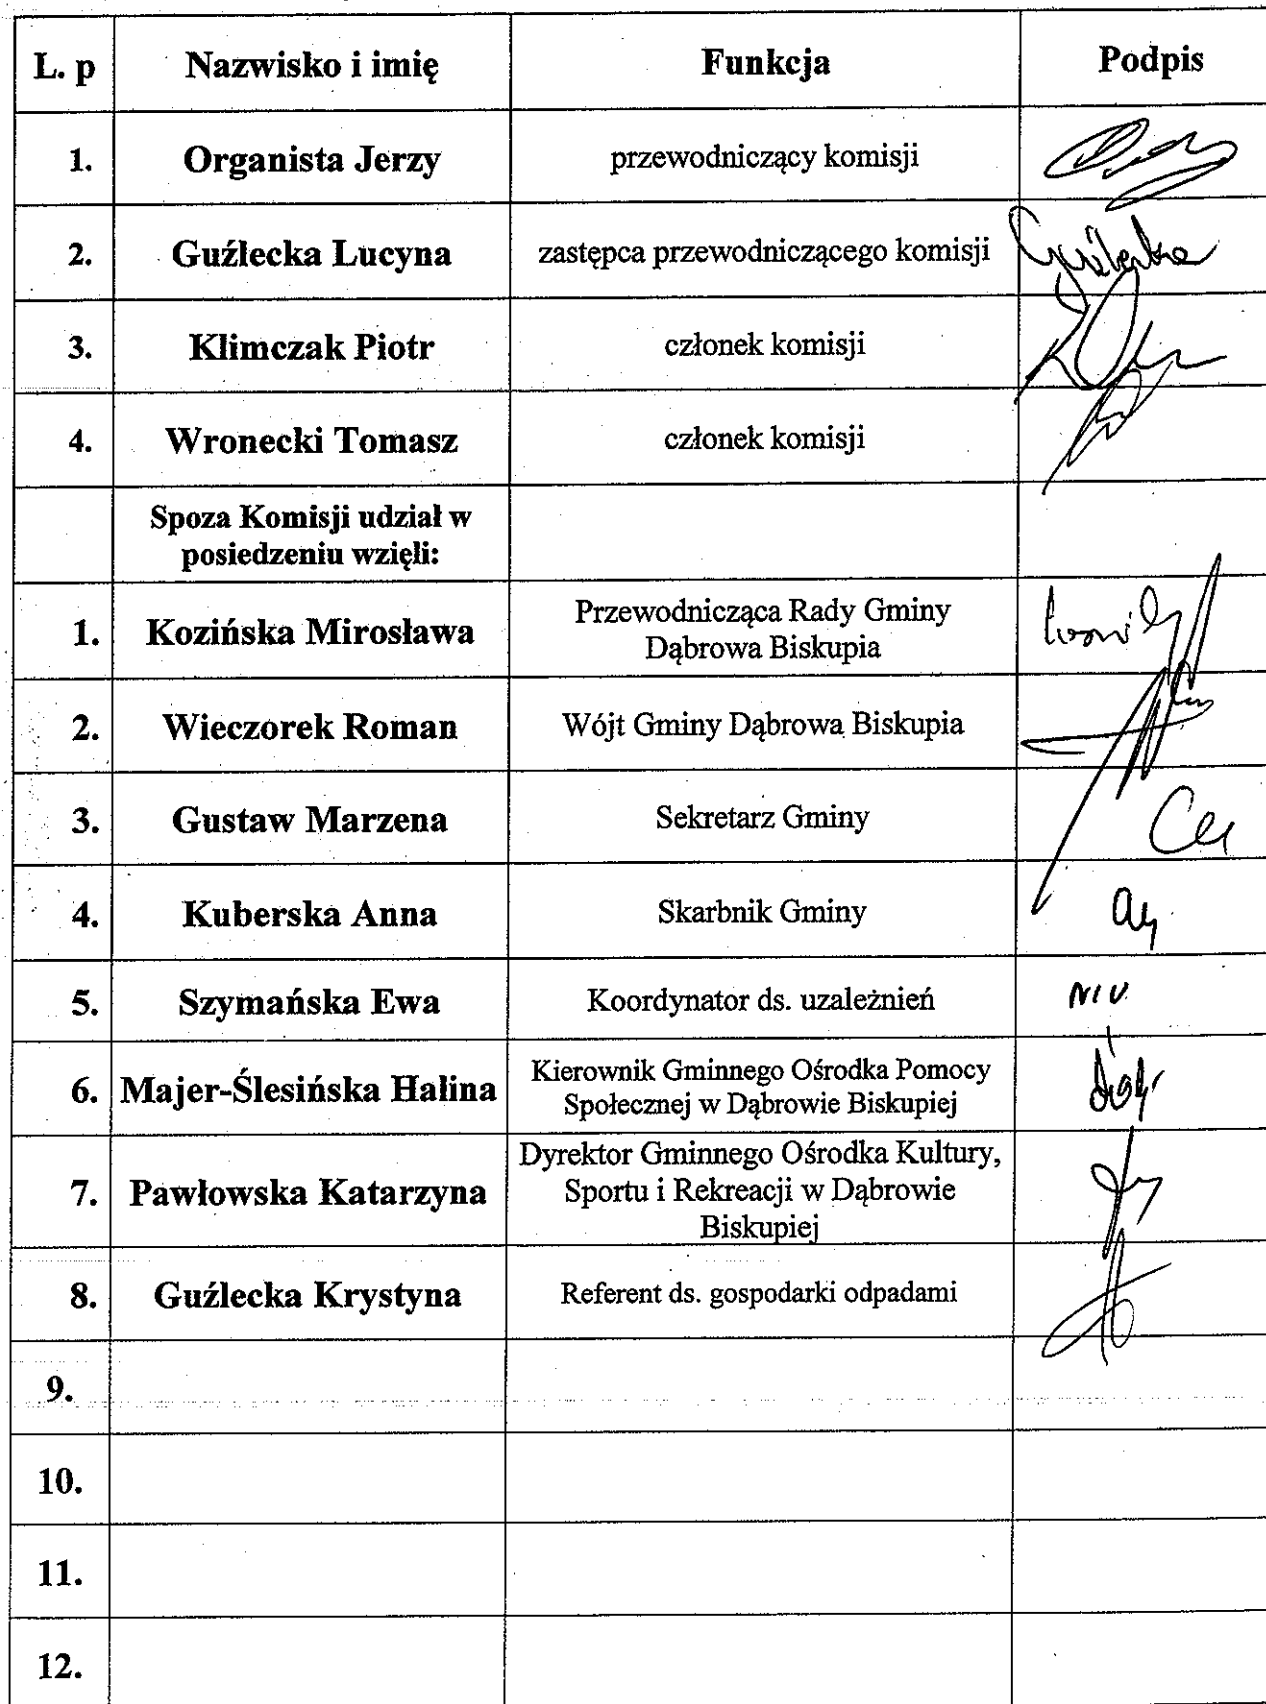 L. p Nazwisko i imię Funkcja Podpis
1. Organista Jerzy przewodniczący komisji
2. Guźlecka Lucyna zastępca przewodniczącego komisji Guźlecka
3. Klimczak Piotr członek komisji
4. Wronecki Tomasz członek komisji
Spoza Komisji udział w
posiedzeniu wzięli:
1. Kozińska Mirosława Przewodnicząca Rady Gminy
Dąbrowa Biskupia
2. Wieczorek Roman Wójt Gminy Dąbrowa Biskupia
3. Gustaw Marzena Sekretarz Gminy
4. Kuberska Anna Skarbnik Gminy
5. Szymańska Ewa Koordynator ds. uzależnień
6. Majer-Ślesińska Halina Kierownik Gminnego Ośrodka Pomocy
Społecznej w Dąbrowie Biskupiej
7. Pawłowska Katarzyna Dyrektor Gminnego Ośrodka Kultury,
Sportu i Rekreacji w Dąbrowie
Biskupiej
8. Guźlecka Krystyna Referent ds. gospodarki odpadami
9.
10.
11.
12.